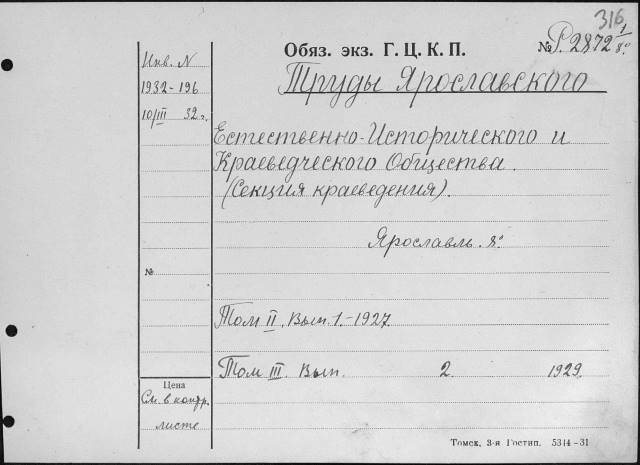 316
Обяз. экз. Г. Ц. К. П. № Р.2872 1/8º
Инв. N
1932-196
10/III 32 г.
Труды Ярославского
Естественно-Исторического и
Краеведческого Общества.
(Секция краеведения).
Ярославль. 8º
№
Том II. Вып. 1.-1927.
Том III. Вып. 2. 1929.
Цена
См. в контр.
листе
Томск, 3-я Гостип. 5314-31